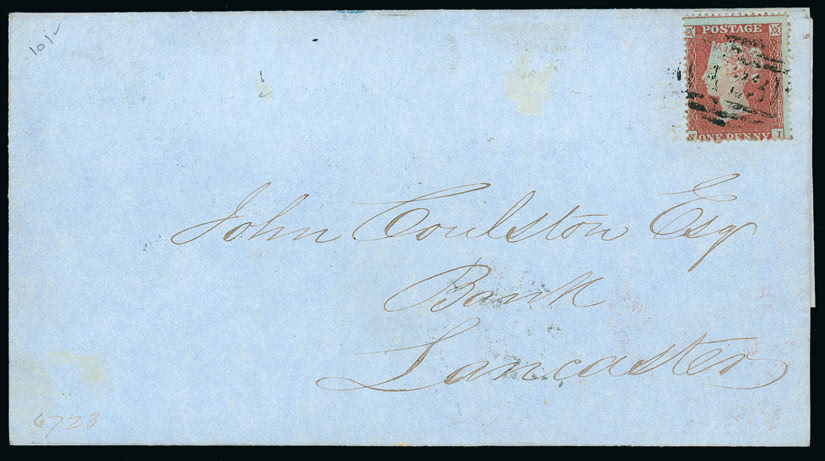 101-
POSTAGE
ONE PENNY
I
John Coulston Esqr
Bank
Lancaster
6723